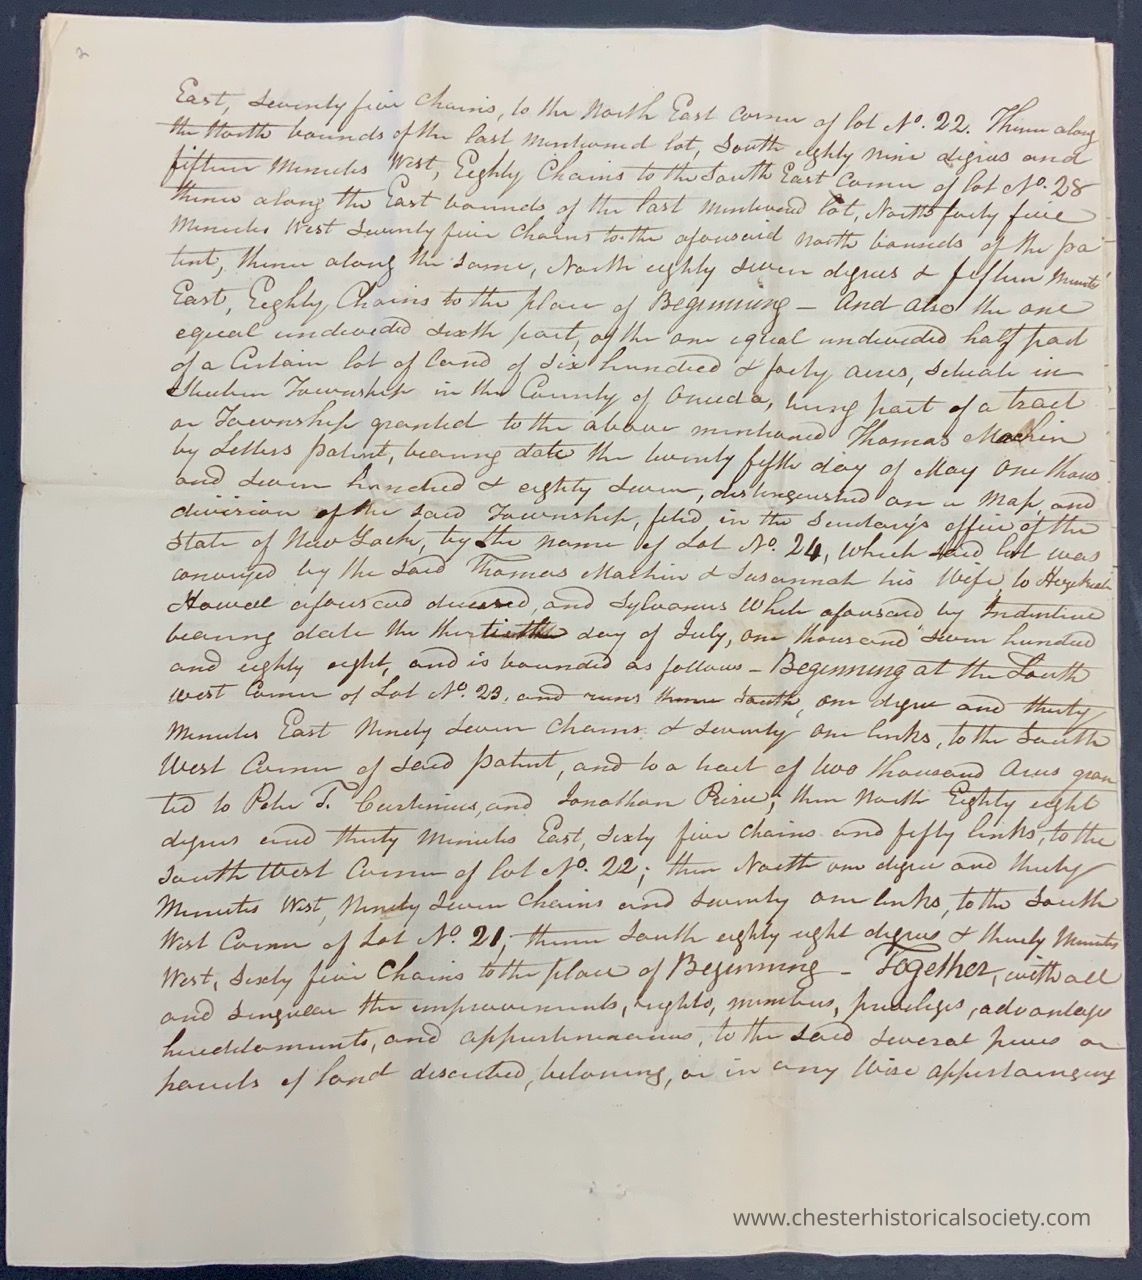 2
East, Seventy five Chains, to the North East Corner of lot No. 22. Thence along
the North bounds of the last mentioned lot, South eighty nine degrees and
fifteen Minutes West, Eighty Chains to the South East Corner of lot No. 28
thence along the East bounds of the last mentioned lot, North forty five
Minutes West Seventy five Chains to the aforesaid North bounds of the pa-
tent, thence along the same, North eighty seven degrees & fifteen Minutes
East, Eighty Chains to the place of Beginning – And also the one
equal undivided sixth part, of the one equal undivided half part
of a Certain lot of land of Six hundred & forty acres, Situate in
Steuben Township in the County of Oneida, being part of a tract
or Township granted to the above mentioned Thomas Machin
by Letters Patent, bearing date the twenty fifth day of May One thous
and seven hundred & eighty seven, distinguished on a Map, and
division of the said Township, filed, in the Secretary's office of the
State of New York, by the name of Lot No. 24, which said lot was
conveyed by the said Thomas Machin & Susannah his Wife to Hezekiah
Howell aforesaid deceased, and Sylvanus White aforesaid by Indenture
bearing date the thirtieth day of July, one thousand seven hundred
and eighty eight, and is bounded as follows – Beginning at the South
West Corner of Lot No. 23, and runs thence South, one degree and thirty
Minutes East Ninety seven Chains & seventy one links, to the South
West Corner of said Patent, and to a tract of two thousand Acres gran
ted to Peter T. Curtenius, and Jonathan Peirce; then North Eighty eight
degrees and thirty Minutes East, Sixty five Chains and fifty links, to the
South West Corner of lot No. 22; then North one degree and thirty
Minutes West, Ninety Seven Chains and seventy one links, to the South
West Corner of Lot No. 21; thence South eighty eight degrees & thirty Minutes
West, Sixty five Chains to the place of Beginning – Together, with all
and singular the improvements, rights, members, privileges, advantages
hereditaments, and appurtenances, to the said several pieces or
parcels of land described, beloning, or in any Wise appertaingng
www.chesterhistoricalsociety.com